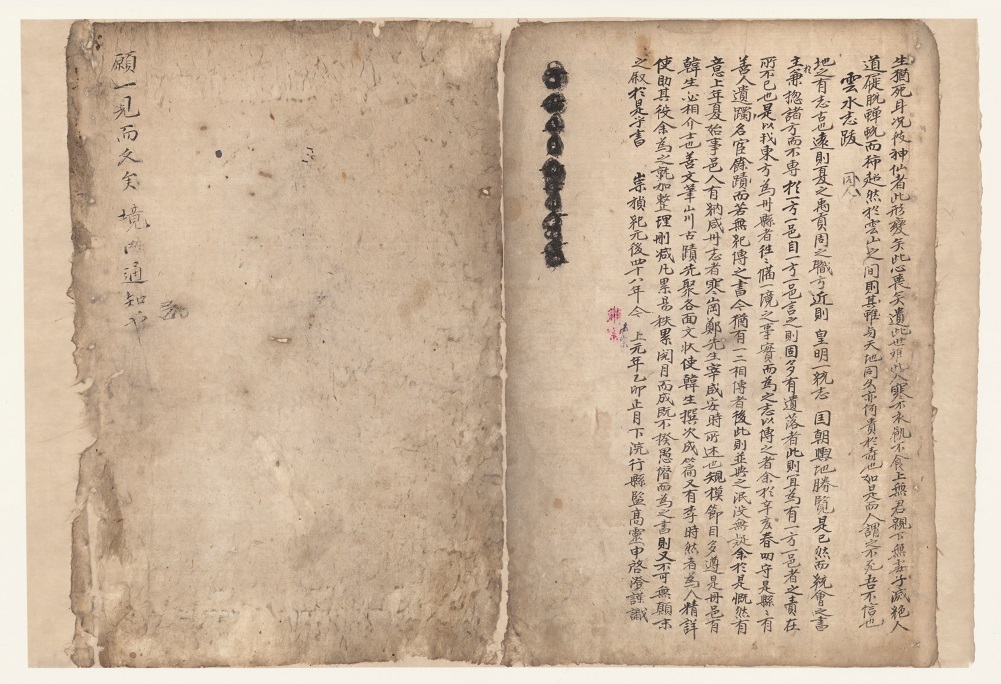 生猶死耳况彼神仙者此形變矣此心喪矣遺此世雖此人寒不衣飢不食上無君親下無妻子滅絶人
道屣脫蟬蛻而超然於雲山之間則其雖與天地同久亦何貴於壽也如是而人謂之不死吾不信也
雲水志跋
地之有志古也遠則夏之禹貢周之職方近則 皇明一統志 国朝輿地勝覧是已然而統會之書
主於兼揔諸方而不專於一方一邑自一方一邑言之則固多有遺落者此則宜爲有一方一邑者之責在
所不已也是以我東方爲州縣者徃〻偹一境之事實而爲之志以傳之者余於辛亥春叨守是縣〻有
善人遺躅名宦餘蹟而若無紀傳之書今猶有一二相傳者後此則並與之泯没無疑余於是慨然有
意上年夏始事邑人有納咸州志者寒岡鄭先生宰咸安時所述也規模節目多遵是冊邑有
韓生必相介士也善文筆山川古蹟先聚各面文狀使韓生撰次成篇又有李時然者爲人精詳
使助其役余爲之就加整理刪减凡累易秩累閱月而成既不揆愚僭而爲之書則又不可無顚末
之叙於是乎書 崇禎紀元後四十八年今 上元年乙卯正月下浣行縣監高靈申啓澄謹識
願一見而久矣 境內通知